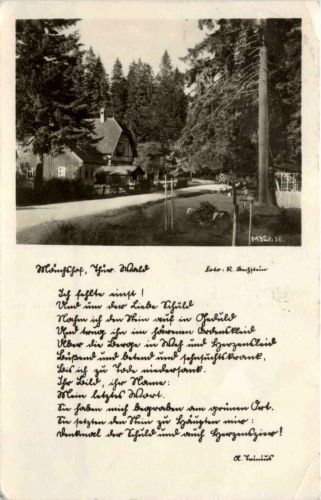 Mönchshof, Thür. Wald
Foto: K. Bechstein
Ich fehlte einst!
Und um der Liebe Schuld
Nahm ich den Stein auf in Geduld
Und trug ihn im härenen Ordenskleid
Über die Berge in Weh und Herzensleid
Büßend und betend und sehnsuchtskrank.
Bis ich zu Tode niedersank.
Ihr Bild, ihr Name:
Mein letztes Wort.
Sie haben mich begraben am grünen Ort.
Sie setzten den Stein zu Häupten mir:
Denkmal der Schuld und auch Herzenszier!
A. Trinius